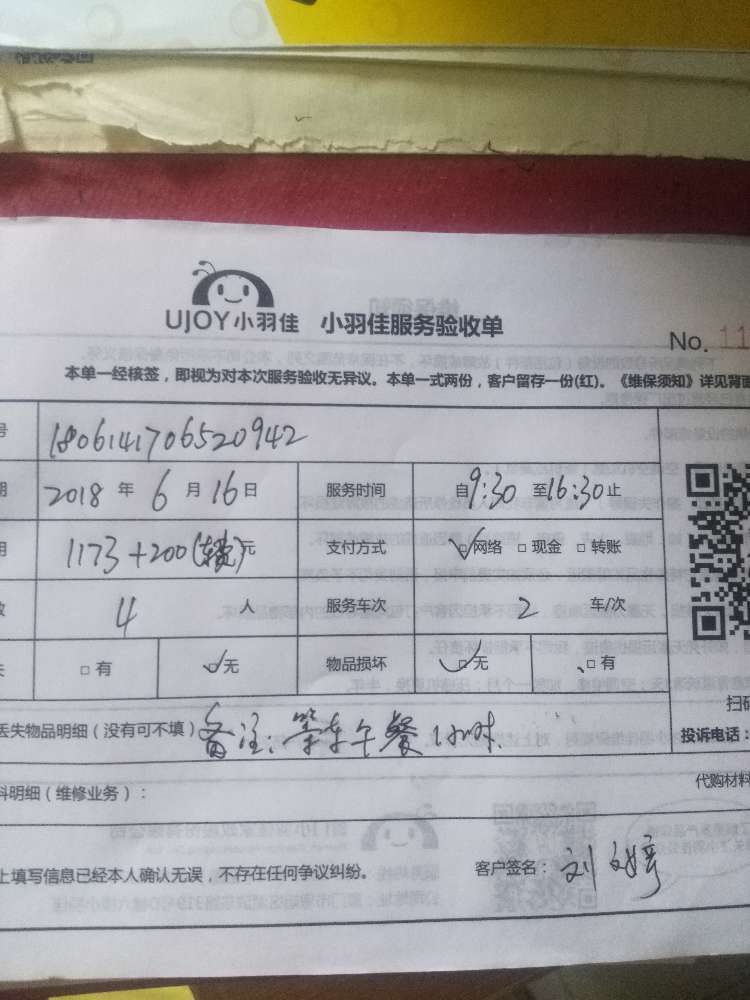 UJOY小羽佳 小羽佳服务验收单
No. 11
本单一经核签，即视为对本次服务验收无异议。本单一式两份，客户留存一份(红)。《维保须知》详见背面
号 1806141706520942
期 2018 年 6 月 16 日 服务时间 自9:30 至16:30止
用 1173+200 元 支付方式 网络 □ 现金 □ 转账
数 4 人 服务车次 2 车/次
失 □ 有 无 物品损坏 无 □ 有
扫码
丢失物品明细（没有可不填） 备注：等车午餐1小时. 投诉电话：
料明细（维修业务）： 代购材料
上填写信息已经本人确认无误，不存在任何争议纠纷。 客户签名：刘文婷